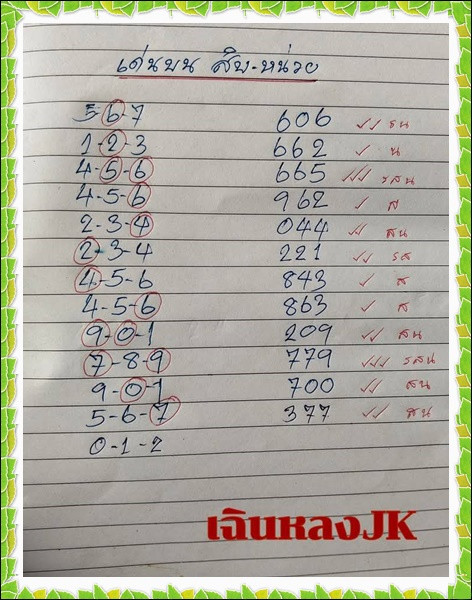 เด่นบน สิบ-หน่วย
5-6-7 606 ✓✓ รน
1-2-3 662 ✓ น
4-5-6 665 ✓✓✓ รสน
4-5-6 962 ✓ ส
2-3-4 044 ✓✓ สน
2-3-4 221 ✓✓ รส
4-5-6 843 ✓ ส
4-5-6 863 ✓ ส
9-0-1 209 ✓✓ สน
7-8-9 779 ✓✓✓ รสน
9-0-1 700 ✓✓ สน
5-6-7 377 ✓✓ สน
0-1-2
เฉินหลงJK